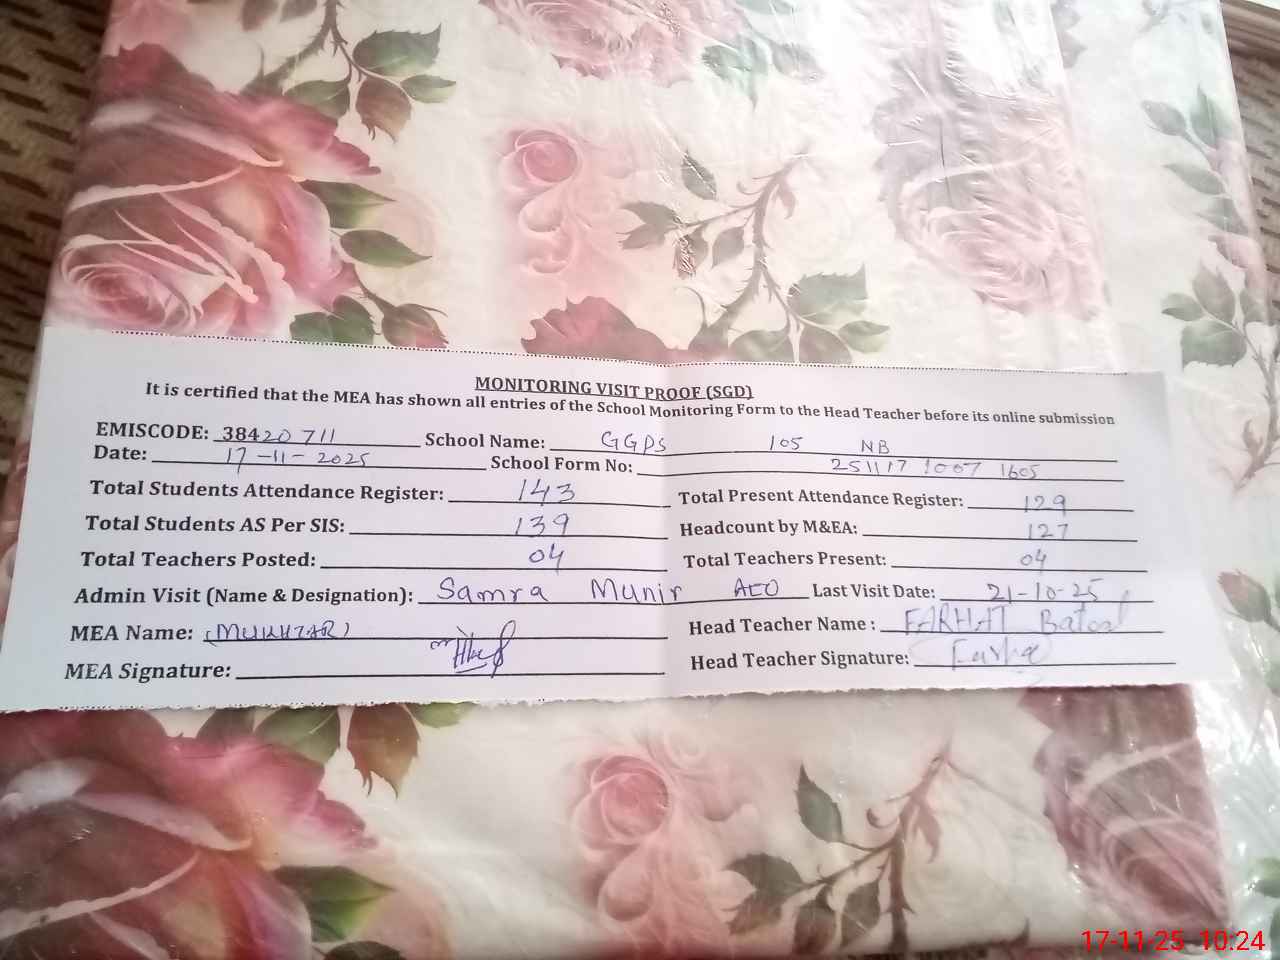 MONITORING VISIT PROOF (SGD)
It is certified that the MEA has shown all entries of the School Monitoring Form to the Head Teacher before its online submission
EMISCODE: 38420711 School Name: GGPS 105 NB
Date: 17-11-2025 School Form No: 251117 1007 1605
Total Students Attendance Register: 143 Total Present Attendance Register: 129
Total Students AS Per SIS: 139 Headcount by M&EA: 127
Total Teachers Posted: 04 Total Teachers Present: 04
Admin Visit (Name & Designation): Samra Munir AEO Last Visit Date: 21-10-25
MEA Name: (MUKHTAR) Head Teacher Name: FARHAT Batool
MEA Signature: Head Teacher Signature: Farha
17-11-25 10:24